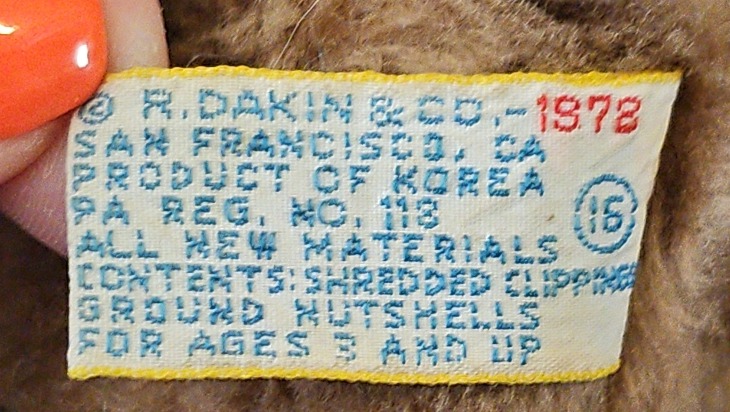 © R. DAKIN & CO. - 1978
SAN FRANCISCO, CA
PRODUCT OF KOREA
PA REG. NO. 118
16
ALL NEW MATERIALS
CONTENTS: SHREDDED CLIPPINGS
GROUND NUTSHELLS
FOR AGES 3 AND UP